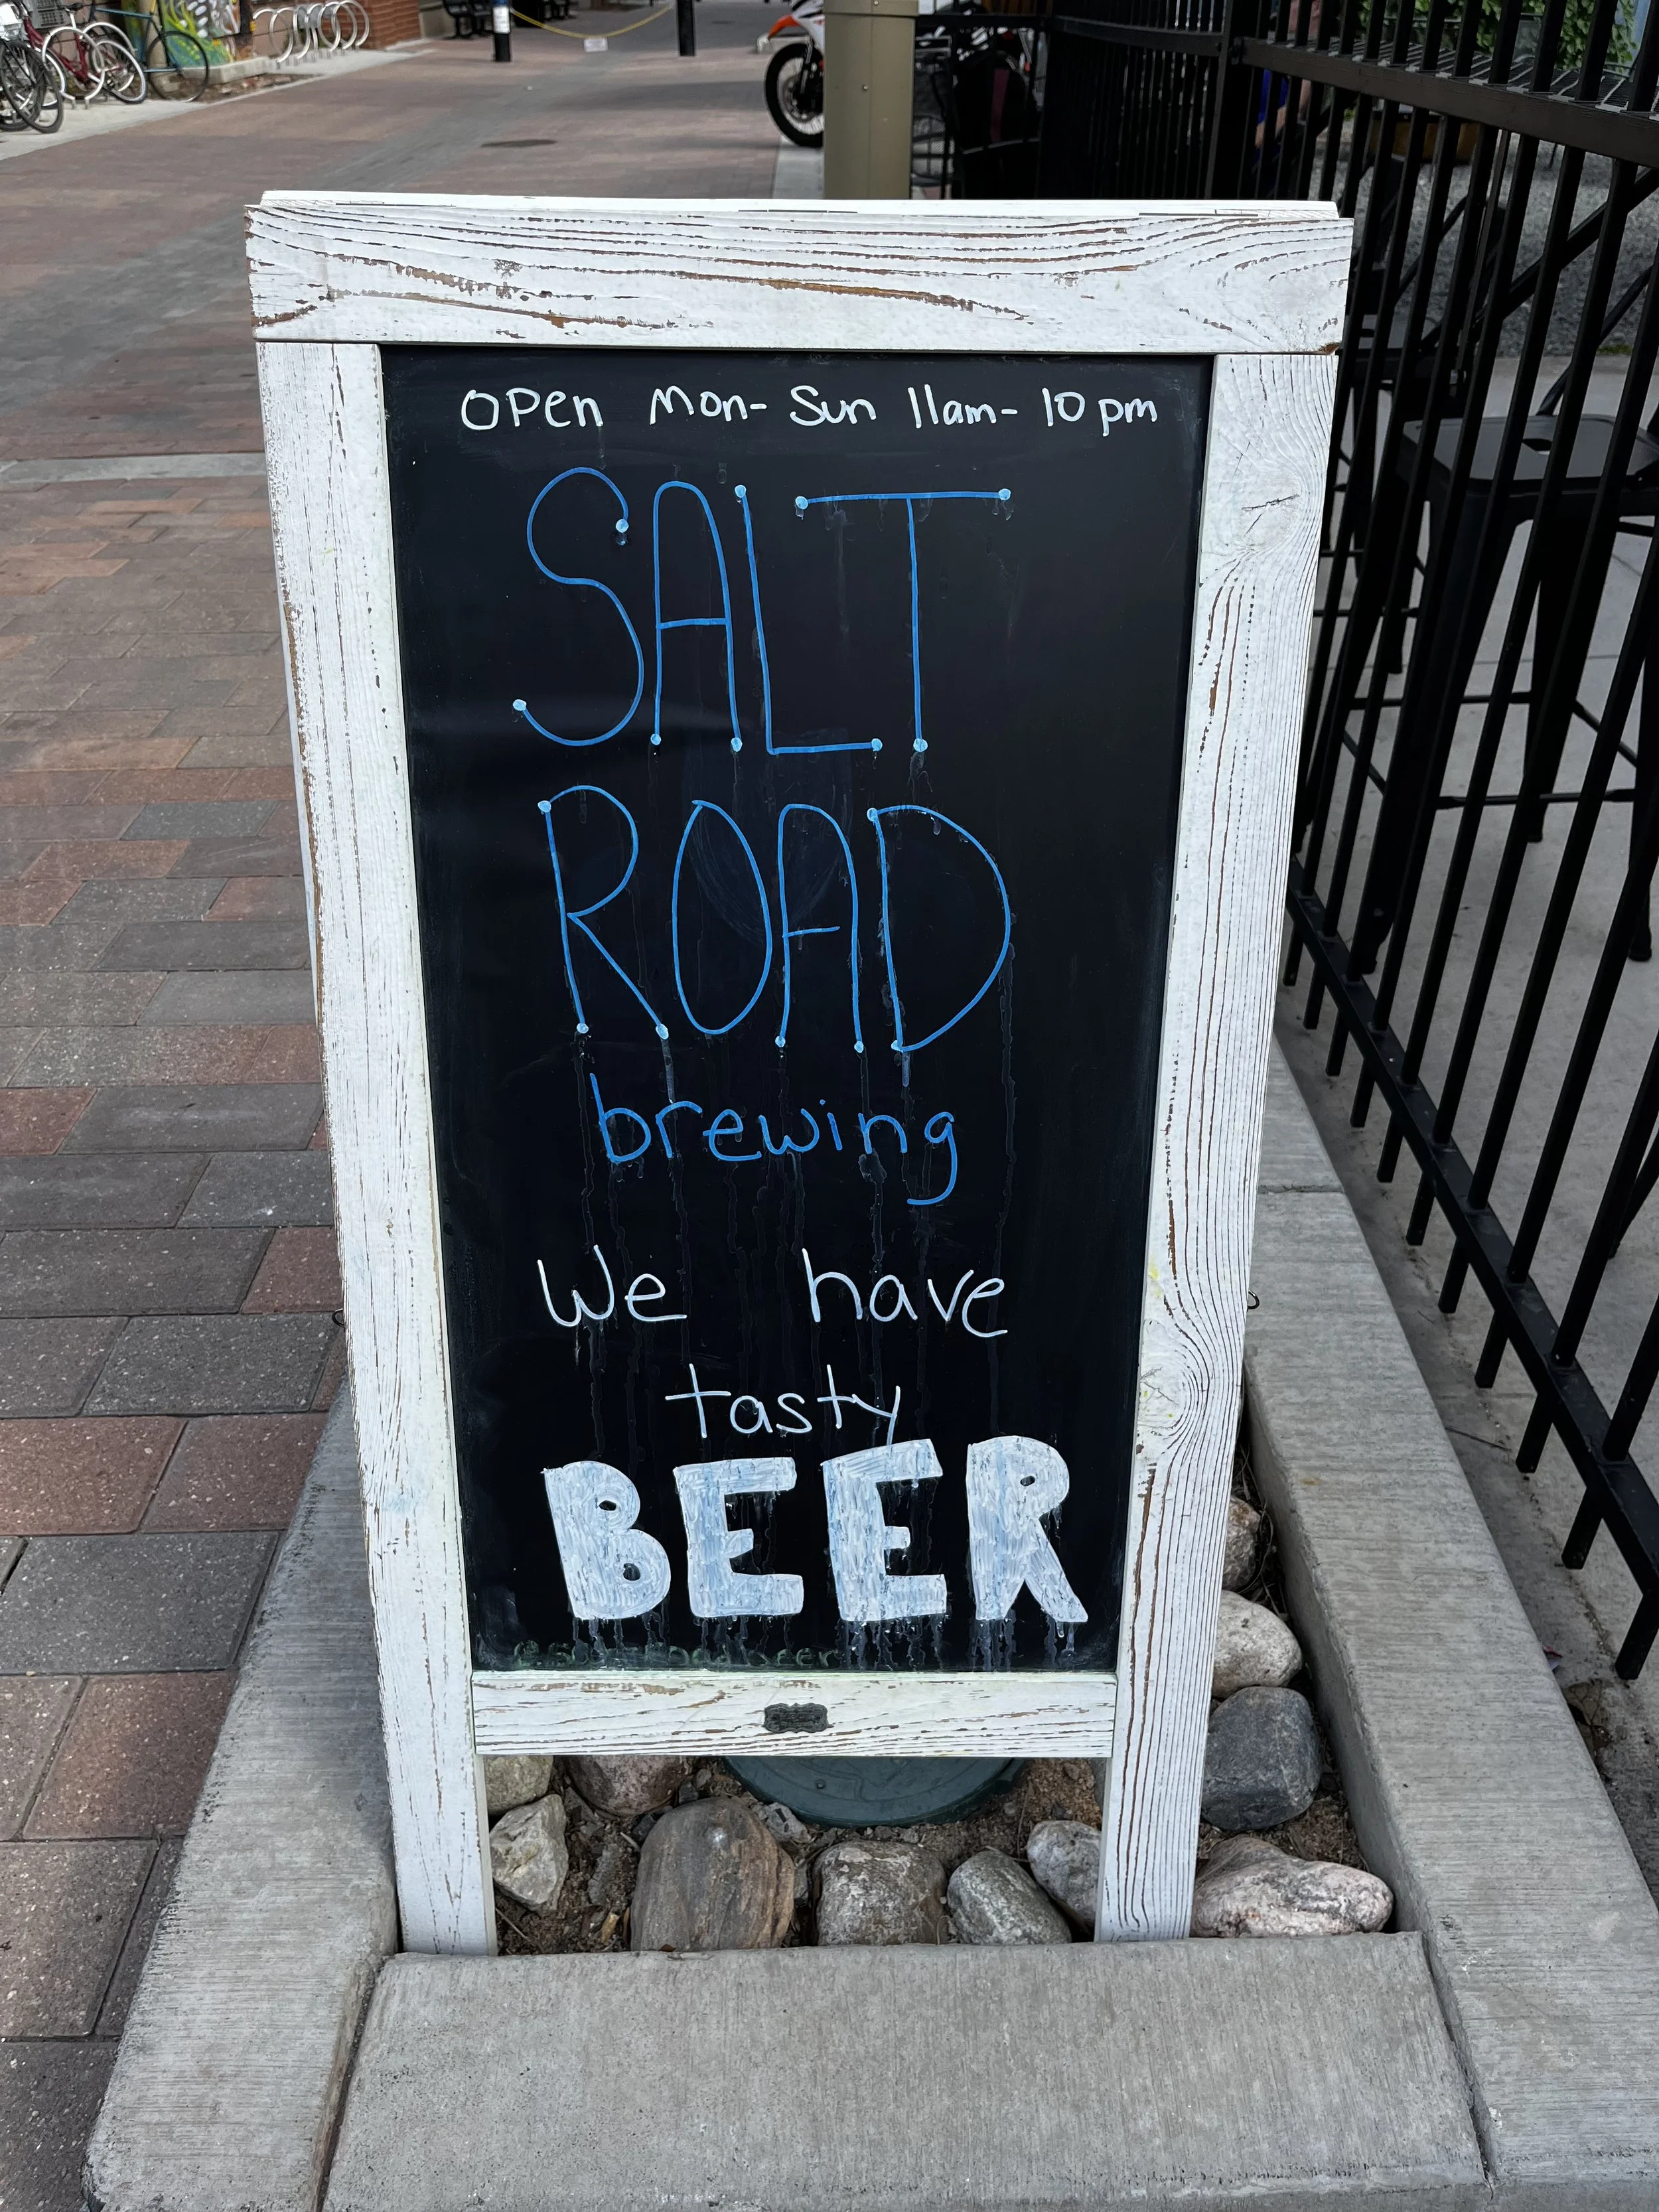 Open Mon- Sun 11am- 10pm
SALT
ROAD
brewing
We have
tasty
BEER